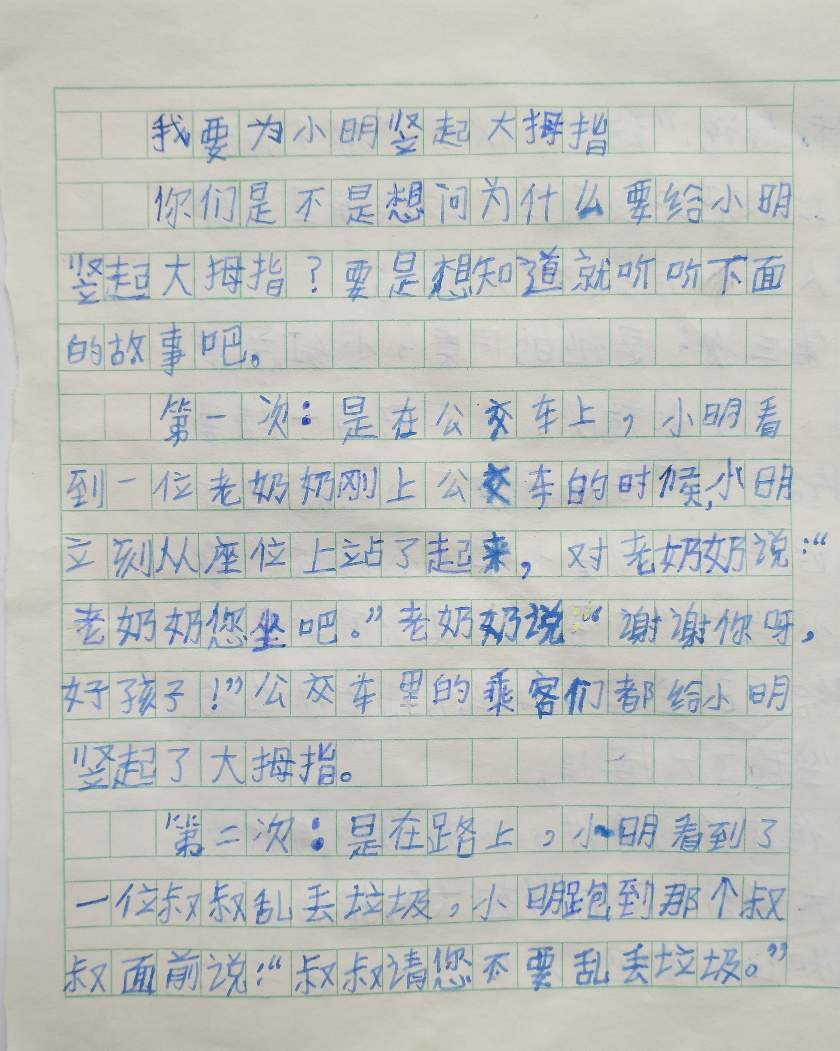 我要为小明竖起大拇指
你们是不是想问为什么要给小明
竖起大拇指？要是想知道就听听下面
的故事吧。
第一次：是在公交车上，小明看
到一位老奶奶刚上公交车的时候，小明
立刻从座位上站了起来，对老奶奶说：“
老奶奶您坐吧。”老奶奶说“谢谢你呀，
好孩子！”公交车里的乘客们都给小明
竖起了大拇指。
第二次：是在路上，小明看到了
一位叔叔乱丢垃圾，小明跑到那个叔
叔面前说：“叔叔请您不要乱丢垃圾。”